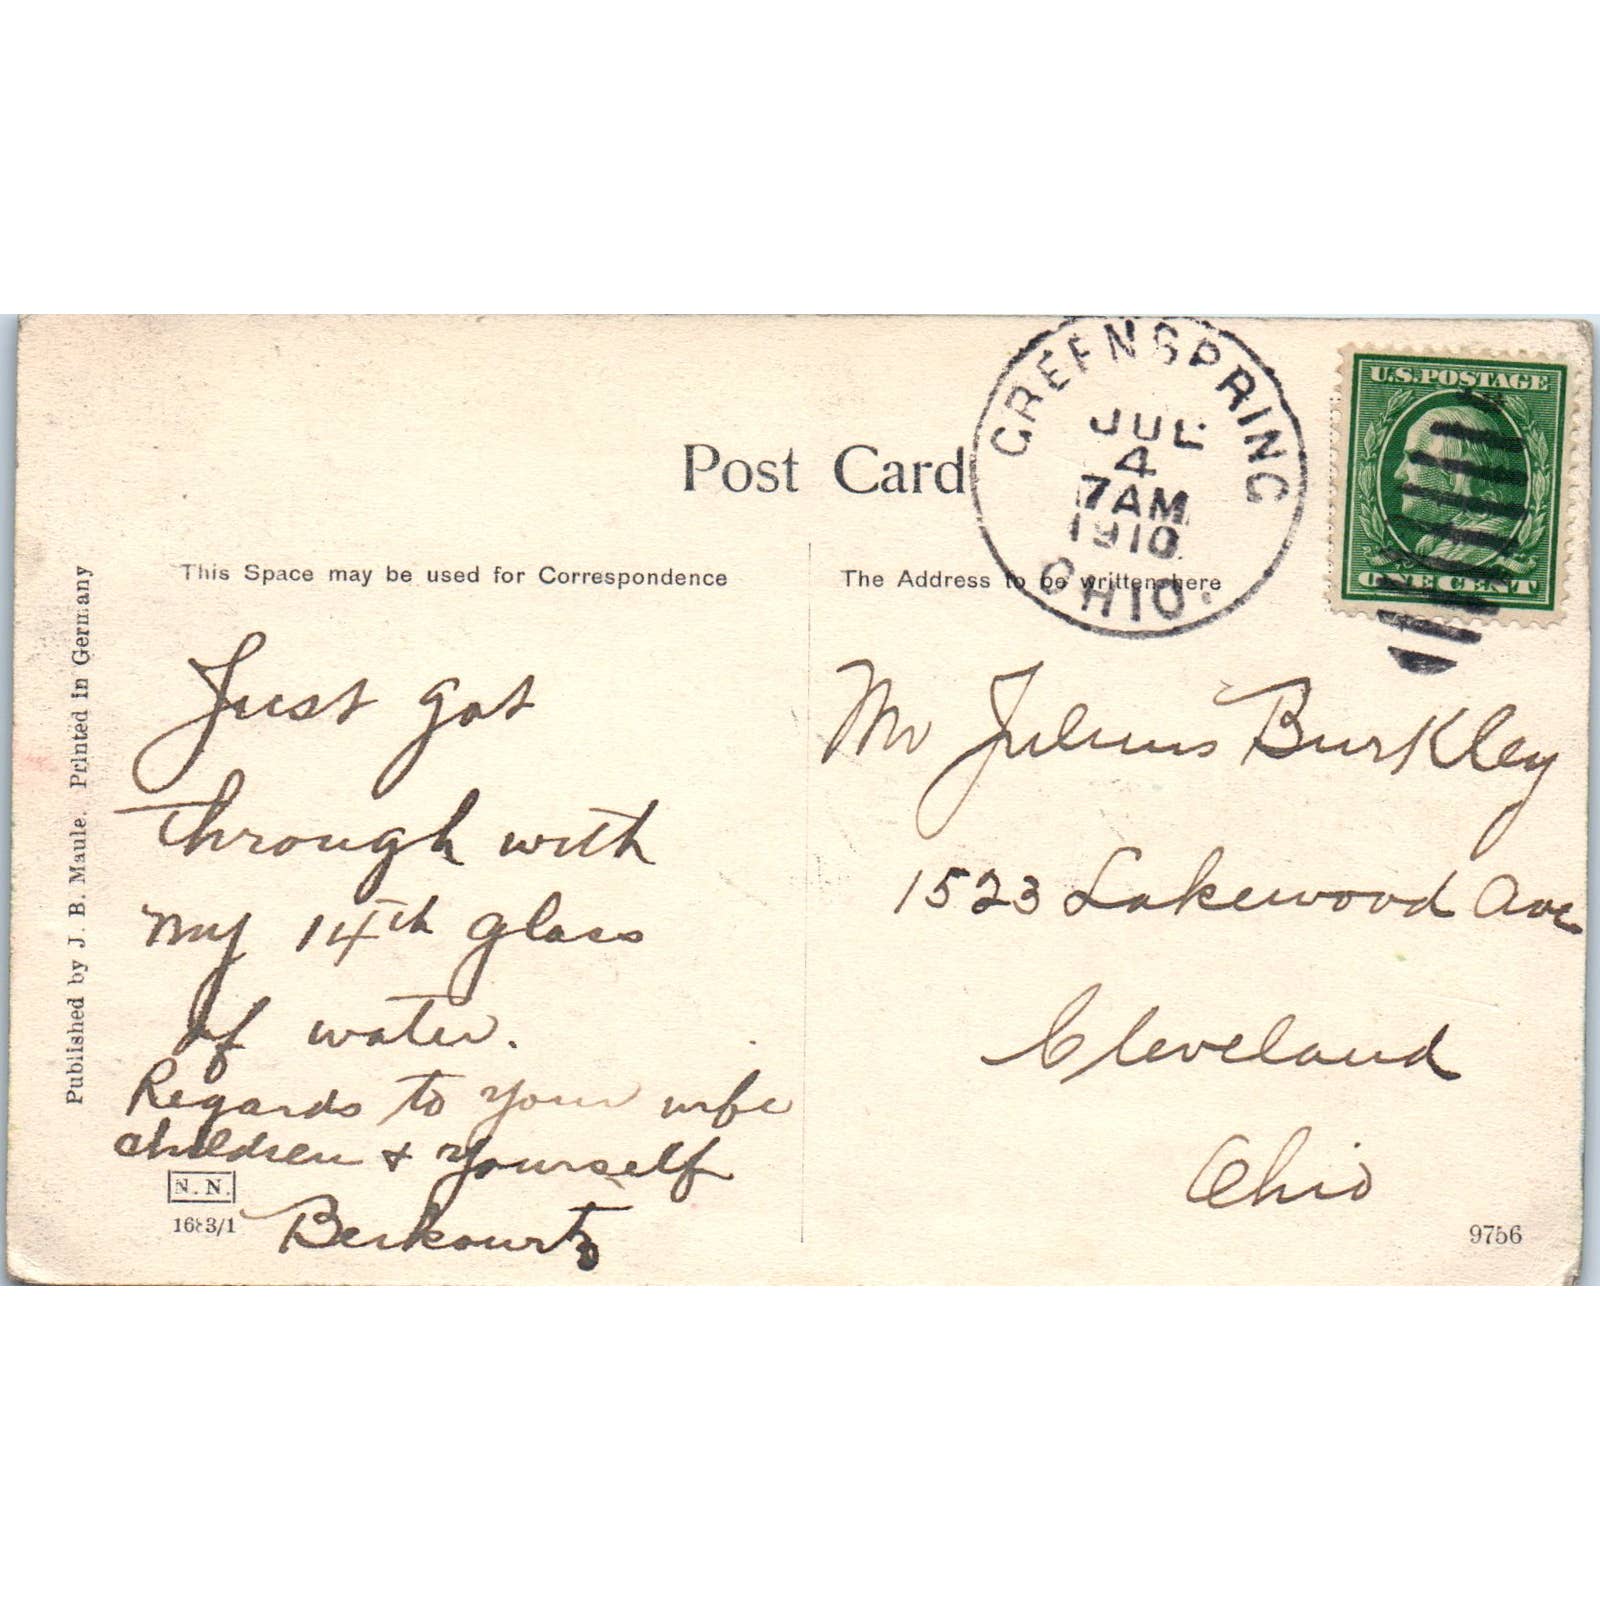 GREENSPRING
JUL
4
7 AM
1910
OHIO.
U.S. POSTAGE
ONE CENT
Post Card
This Space may be used for Correspondence
The Address to be written here
Published by J. B. Maule. Printed in Germany
Just got
through with
my 14th glass
of water.
Regards to your wife
children & yourself
Berkowitz
N. N.
1683/1
Mr Julius Burkley
1523 Lakewood Ave
Cleveland
Ohio
9756